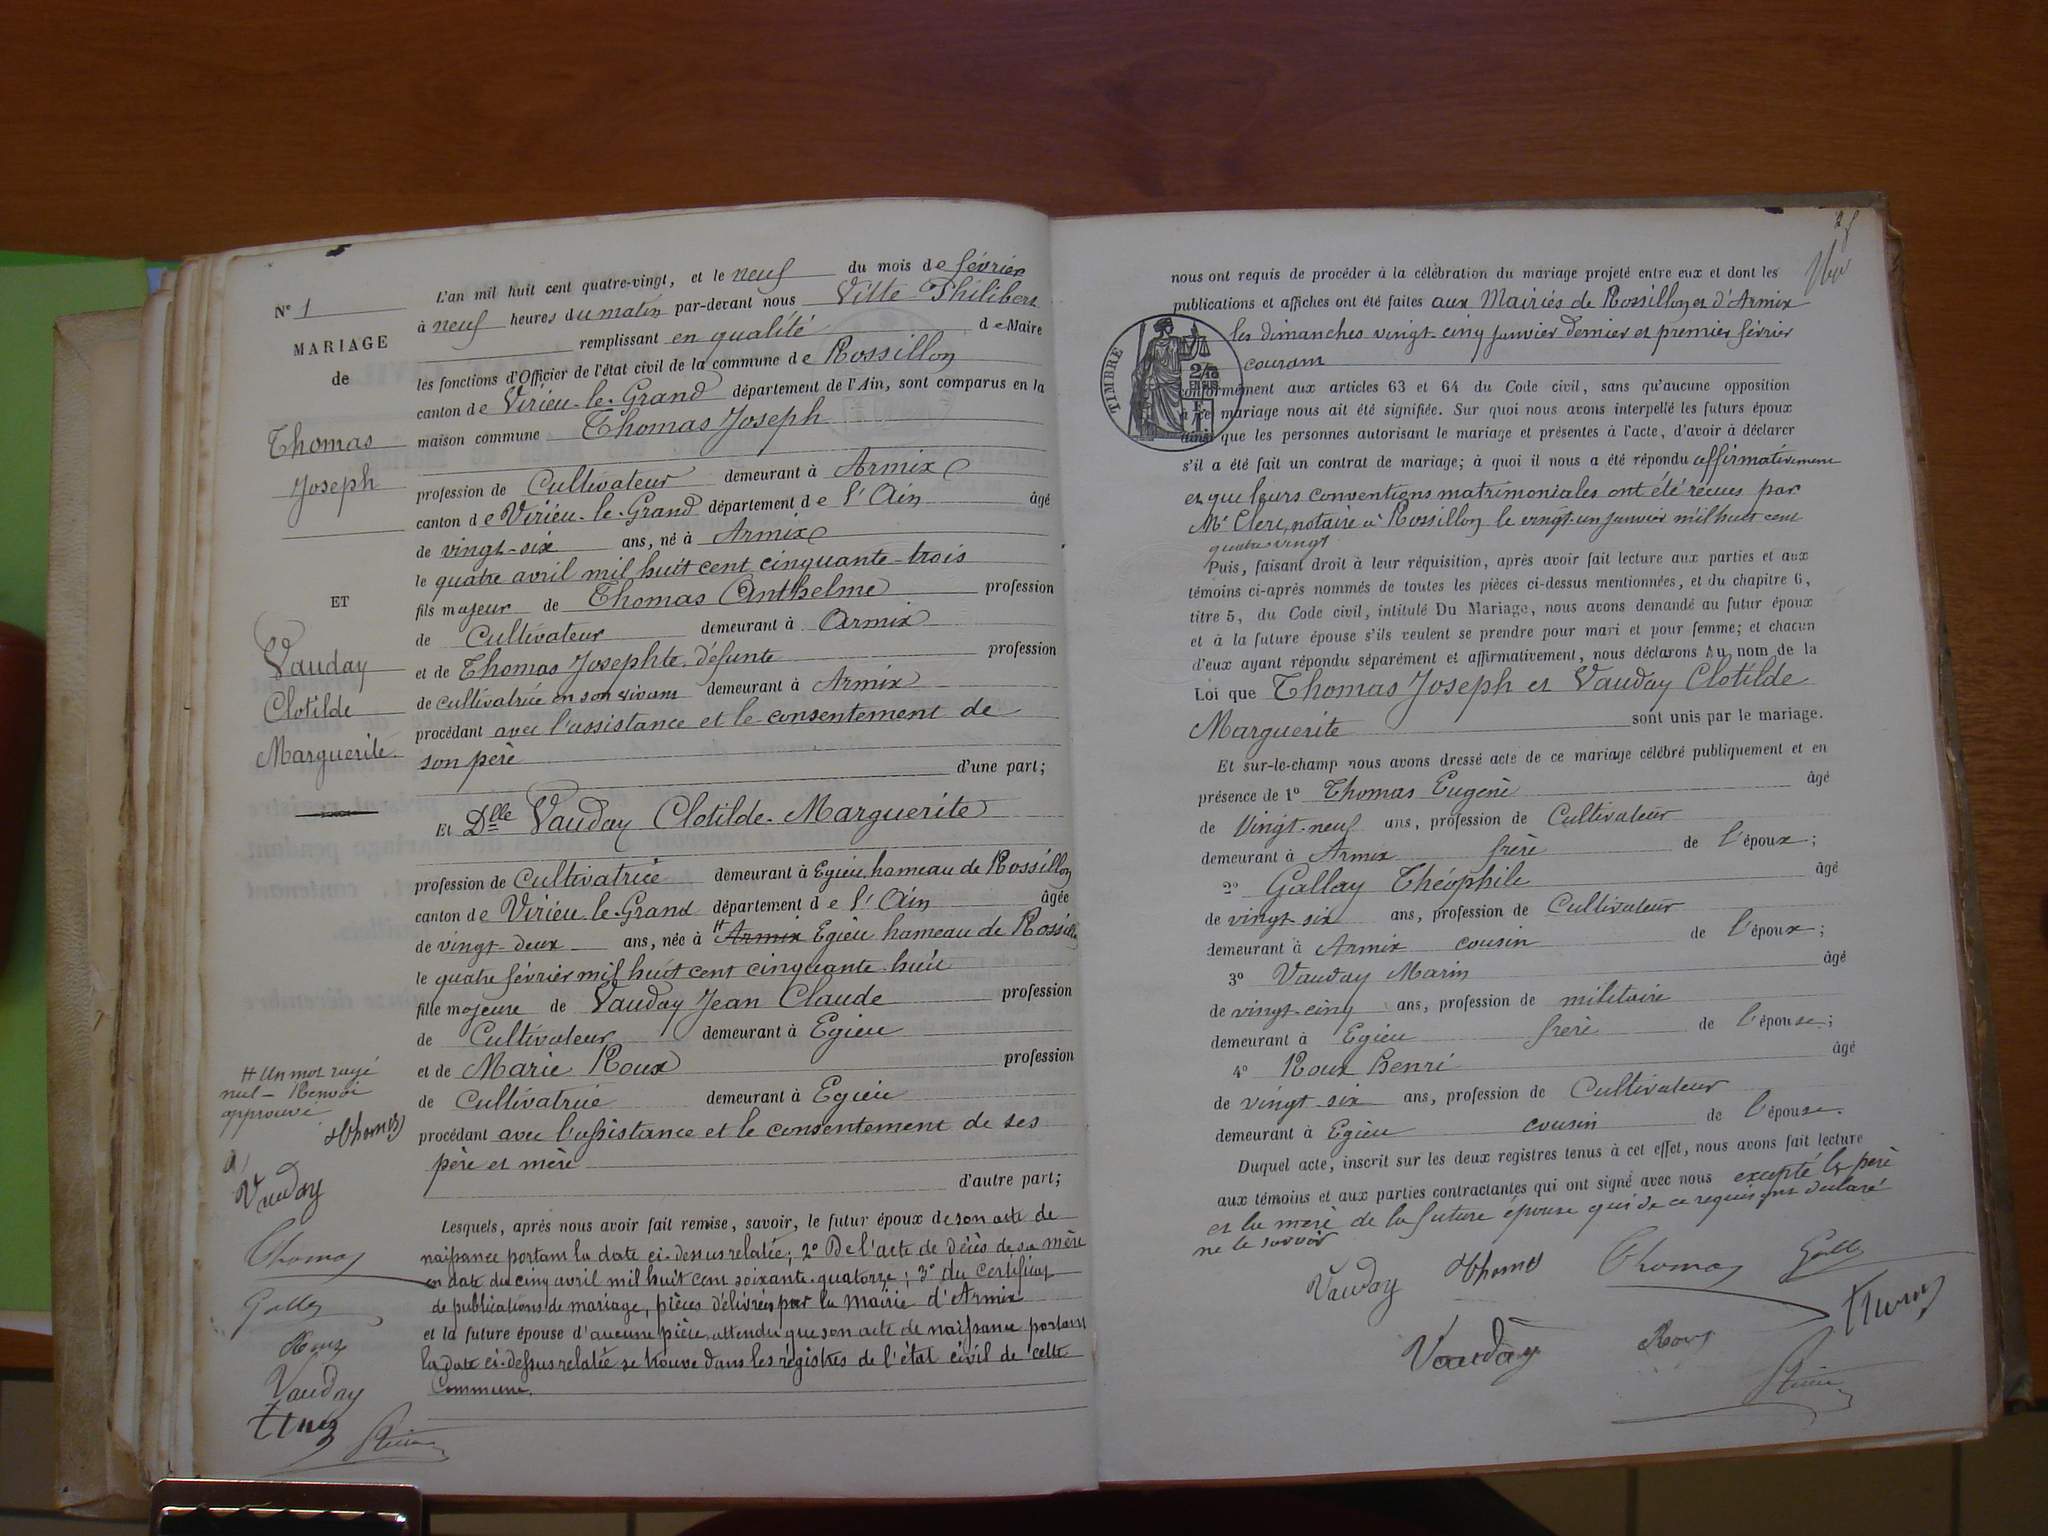 N° 1
MARIAGE
de
Thomas
Joseph
ET
Vauday
Clotilde
Marguerite
L'an mil huit cent quatre-vingt, et le neuf du mois de février
à neuf heures du matin par-devant nous Vitte Philibert
remplissant en qualité de Maire
les fonctions d'Officier de l'état civil de la commune de Rossillon
canton de Virieu-le-Grand département de l'Ain, sont comparus en la
maison commune Thomas Joseph
profession de Cultivateur demeurant à Armix
canton de Virieu-le-Grand département de l'Ain âgé
de vingt-six ans, né à Armix
le quatre avril mil huit cent cinquante-trois
fils majeur de Thomas Anthelme profession
de Cultivateur demeurant à Armix
et de Thomas Josephte, défunte profession
de cultivatrice en son vivant demeurant à Armix
procédant avec l'assistance et le consentement de
son père
d'une part;
Et Dlle Vauday Clotilde-Marguerite
profession de Cultivatrice demeurant à Egieu, hameau de Rossillon
canton de Virieu-le-Grand département de l'Ain âgée
de vingt-deux ans, née à # Armix Egieu hameau de Rossillon
le quatre février mil huit cent cinquante-huit
fille majeure de Vauday Jean Claude profession
de Cultivateur demeurant à Egieu
et de Marie Roux profession
de Cultivatrice demeurant à Egieu
procédant avec l'assistance et le consentement de ses
père et mère
d'autre part;
# Un mot rayé
nul - Renvoi
approuvé
Thomas
Vauday
Thomas
Gallay
Roux
Vauday
Lesquels, après nous avoir fait remise, savoir, le futur époux de son acte de
naissance portant la date ci-dessus relatée; 2° De l'acte de décès de sa mère
en date du cinq avril mil huit cent soixante-quatorze; 3° du certificat
de publications de mariage, pièces délivrées par la mairie d'Armix
et la future épouse d'aucune pièce, attendu que son acte de naissance portant
la date ci-dessus relatée se trouve dans les régistres de l'état civil de cette
Commune.
28
nous ont requis de procéder à la célébration du mariage projeté entre eux et dont les
publications et affiches ont été faites aux Mairies de Rossillon et d'Armix
les dimanches vingt-cinq janvier dernier et premier février
courant
TIMBRE
conformément aux articles 63 et 64 du Code civil, sans qu'aucune opposition
à ce mariage nous ait été signifiée. Sur quoi nous avons interpellé les futurs époux
ainsi que les personnes autorisant le mariage et présentes à l'acte, d'avoir à déclarer
s'il a été fait un contrat de mariage; à quoi il nous a été répondu affirmativement
et que leurs conventions matrimoniales ont été reçues par
Me Clerc, notaire à Rossillon le vingt-un janvier mil huit cent
quatre-vingt
Puis, faisant droit à leur réquisition, après avoir fait lecture aux parties et aux
témoins ci-après nommés de toutes les pièces ci-dessus mentionnées, et du chapitre 6,
titre 5, du Code civil, intitulé Du Mariage, nous avons demandé au futur époux
et à la future épouse s'ils veulent se prendre pour mari et pour femme; et chacun
d'eux ayant répondu séparément et affirmativement, nous déclarons Au nom de la
Loi que Thomas Joseph et Vauday Clotilde
Marguerite sont unis par le mariage.
Et sur-le-champ nous avons dressé acte de ce mariage célébré publiquement et en
présence de 1° Thomas Eugène âgé
de Vingt-neuf ans, profession de Cultivateur
demeurant à Armix frère de l'époux;
2° Gallay Théophile âgé
de vingt-six ans, profession de Cultivateur
demeurant à Armix cousin de l'époux;
3° Vauday Marin âgé
de vingt-cinq ans, profession de militaire
demeurant à Egieu frère de l'épouse;
4° Roux Henri âgé
de vingt-six ans, profession de Cultivateur
demeurant à Egieu cousin de l'épouse.
Duquel acte, inscrit sur les deux registres tenus à cet effet, nous avons fait lecture
aux témoins et aux parties contractantes qui ont signé avec nous excepté le père
et la mère de la future épouse qui de ce requis ont déclaré
ne le savoir
Vauday Thomas Thomas Gallay
Vauday Roux Thomas